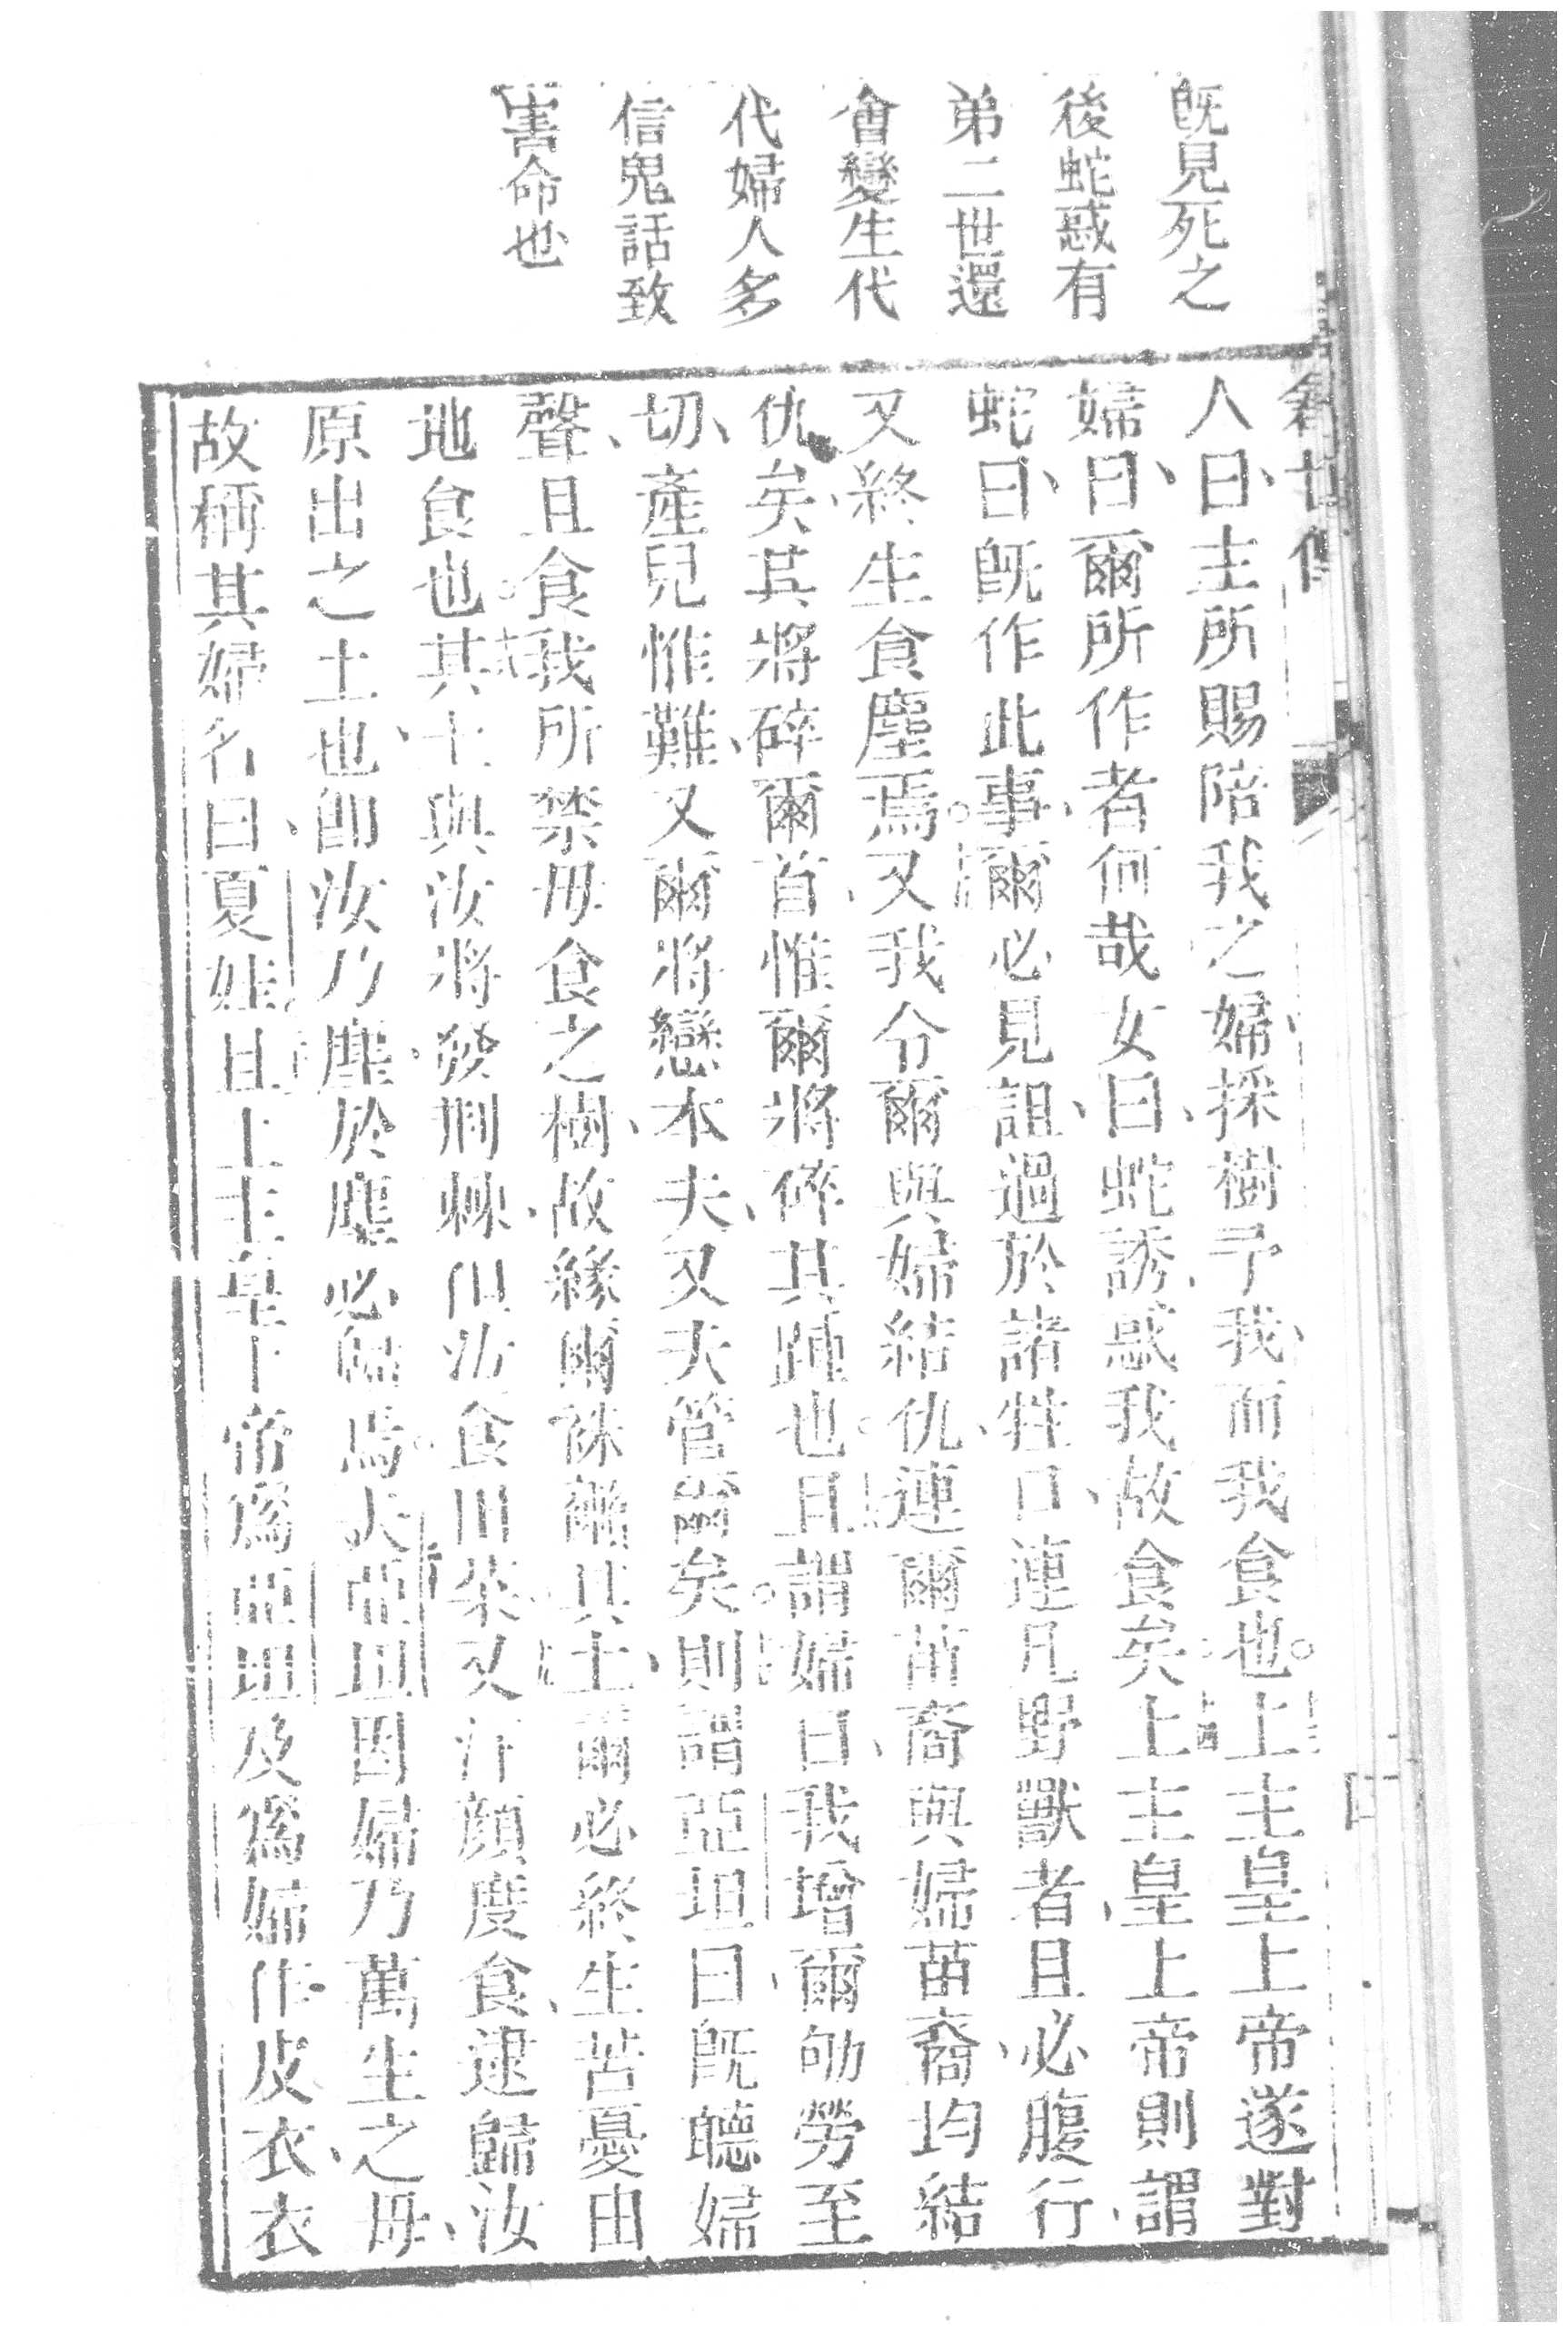 既見死之
後蛇惑有
弟二世還
會變生代
代婦人多
信鬼話致
害命也
人曰主所賜陪我之婦採樹予我而我食也上主皇上帝遂對
婦曰爾所作者何哉女曰蛇誘惑我故食矣上主皇上帝則謂
蛇曰旣作此事爾必見詛過於諸牲口連凡野獸者且必腹行
又終生食塵焉又我令爾與婦結仇連爾苗裔與婦苗裔均結
仇矣其將碎爾首惟爾將碎其踵也且謂婦曰我增爾劬勞至
切產兒惟難又爾將戀本夫又夫管爾矣則謂亞坦曰旣聽婦
聲且食我所禁毋食之樹故緣爾祩爾其土爾必終生苦憂由
地食也其土與汝將發荆棘但汝食田菜又汗顏度食逮歸汝
原出之土也卽汝乃塵於塵必歸焉夫亞坦因婦乃萬生之母
故稱其婦名曰夏娃且上主皇上帝爲亞坦及爲婦作皮衣衣